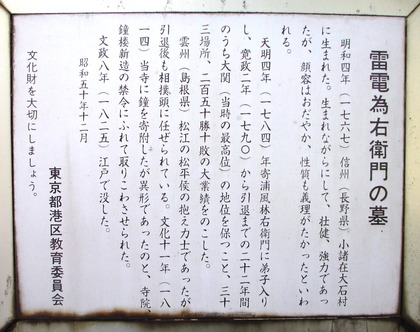 雷電為右衛門の墓
明和四年（一七六七）信州（長野県）小諸在大石村
に生まれた。生まれながらにして、壮健、強力であっ
たが、顔容はおだやか、性質も義理がたかったといわ
れる。
天明四年（一七八四）年寄浦風林右衛門に弟子入り
し、寛政二年（一七九〇）から引退までの二十二年間
のうち大関（当時の最高位）の地位を保つこと、三十
三場所、二百五十勝十敗の大業績をのこした。
雲州（島根県）松江の松平侯の抱え力士であったが
引退後も相撲頭に任ぜられている。文化十一年（一八
一四）当寺に鐘を寄附したが異形であったのと、寺院、
鐘楼新造の禁令にふれて取りこわさせられた。
文政八年（一八二五）江戸で没した。
昭和五十年十二月
東京都港区教育委員会
文化財を大切にしましょう。